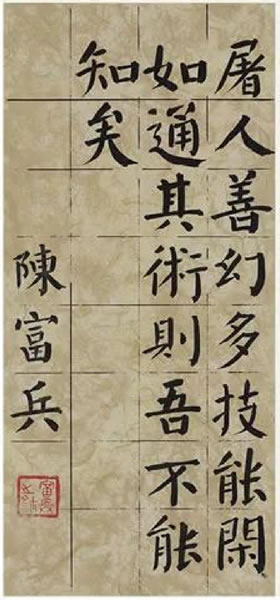 屠人善幻多技能閑
如通其術則吾不能
知矣
陳富兵